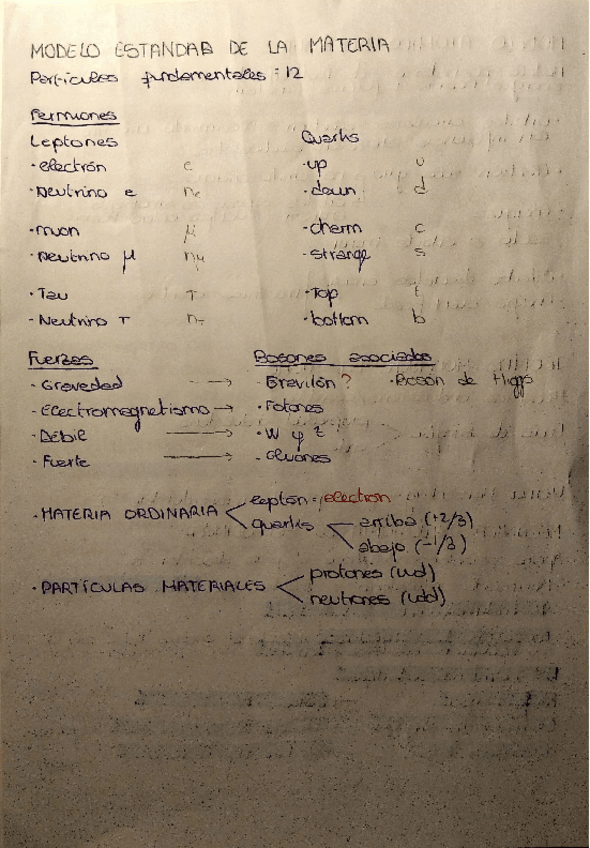 MODELO ESTANDAR DE LA MATERIA
Partículas fundamentales: 12
Fermiones
Leptones Quarks
· electrón e · up u
· Neutrino e ne · down d
· muon μ · charm c
· neutrino μ nμ · strange s
· Tau τ · Top t
· Neutrino τ nτ · bottom b
Fuerzas Bosones asociados
· Gravedad → · Gravitón? · Bosón de Higgs
· Electromagnetismo → · Fotones
· Débil → · W y Z
· Fuerte → · Gluones
· MATERIA ORDINARIA < leptón: electron
quarks < arriba (+2/3)
abajo (-1/3)
· PARTÍCULAS MATERIALES < protones (uud)
neutrones (udd)